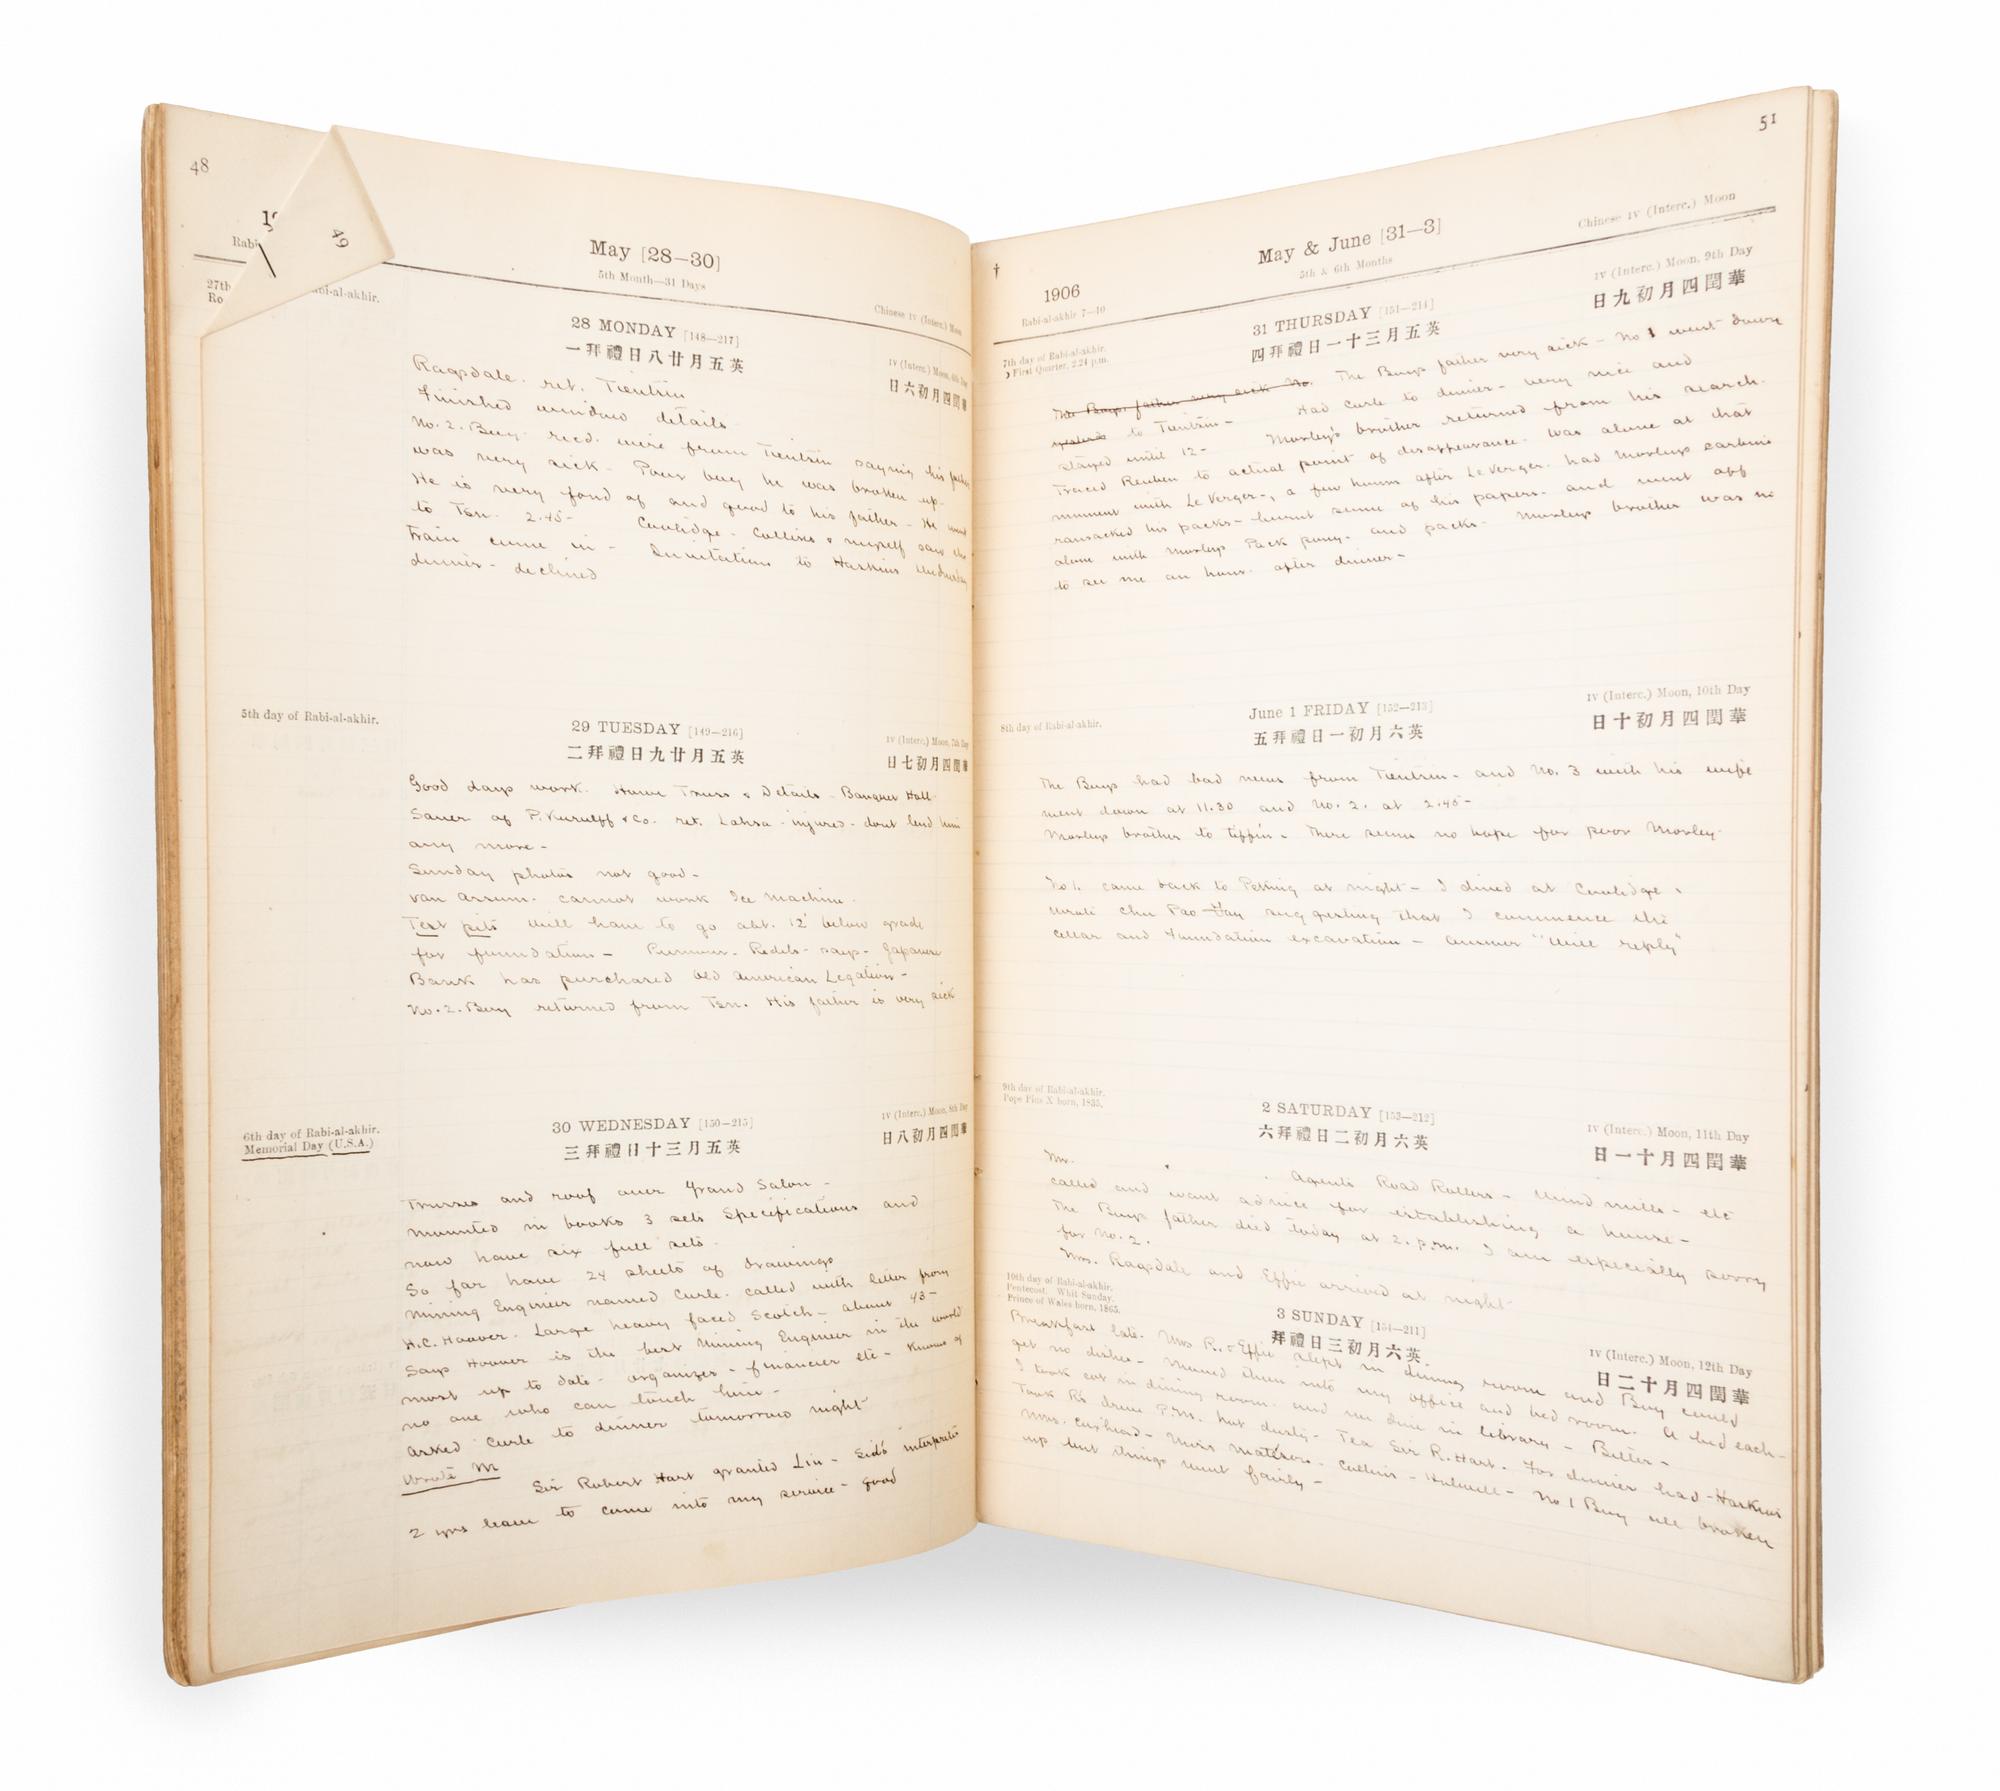 48
49
Rabi
27th
Ro
bi-al-akhir.
May [28—30]
5th Month—31 Days
Chinese IV (Interc.) Moon
28 MONDAY [148—217]
一拜禮日八廿月五英
IV (Interc.) Moon, 6th Day
日六初月四閏華
Ragsdale. ret. Tientsin
Finished window details
No. 2. Boy recd. wire from Tientsin saying his father
was very sick - Poor boy he was broken up-
He is very fond of and good to his father - He went
to Tsn. 2.45- Coolidge - Collins & myself saw the
train come in - Invitation to Haskins Wednesday
dinner - declined
5th day of Rabi-al-akhir.
29 TUESDAY [149—216]
二拜禮日九廿月五英
IV (Interc.) Moon, 7th Day
日七初月四閏華
Good days work. Howe Truss & Details - Banquet Hall
Sauer of P. Kierulff & Co. ret. Lahsa - injured - dont lend him
any more -
Sunday photos not good -
van Arsum. cannot work Ice Machine.
Test pits will have to go abt. 12' below grade
for foundation - Rumour - says - Japanese
Bank has purchased old American Legation -
No. 2. Boy returned from Tsn. His father is very sick
6th day of Rabi-al-akhir.
Memorial Day (U.S.A.)
30 WEDNESDAY [150—215]
三拜禮日十三月五英
IV (Interc.) Moon, 8th Day
日八初月四閏華
Trusses and roof over Grand Salon -
mounted in books 3 sets Specifications and
now have six full sets -
So far have 24 sheets of drawings
Mining Engineer named Curle. called with letter from
H.C. Hoover. Large heavy faced Scotch - about 43 -
Says Hoover is the best Mining Engineer in the world
most up to date - organizer - financier etc - Knows of
no one who can touch him -
Asked Curle to dinner tomorrow night
Wrote M
Sir Robert Hart granted Liu - Sid's interpreter
2 yrs leave to come into my service - good
51
Chinese IV (Interc.) Moon
May & June [31—3]
5th & 6th Months
†
1906
Rabi-al-akhir 7—10
7th day of Rabi-al-akhir.
First Quarter, 2.24 p.m.
31 THURSDAY [151—214]
四拜禮日一十三月五英
IV (Interc.) Moon, 9th Day
日九初月四閏華
The Boys father very sick No. The Boys father very sick - No 1 went down
to Tientsin - Had Curle to dinner - very nice and
stayed until 12 - Morley's brother returned from his search.
Traced Reuben to actual point of disappearance. Was alone at that
moment with LeVerger -, a few hours after LeVerger. had Morleys carbine
ransacked his packs - burnt some of his papers. and went off
alone with Morleys Pack pony. and packs - Morleys brother was in
to see me an hour after dinner -
8th day of Rabi-al-akhir.
June 1 FRIDAY [152—213]
五拜禮日一初月六英
IV (Interc.) Moon, 10th Day
日十初月四閏華
The Boys had bad news from Tientsin - and No. 3 with his wife
went down at 11.30 and No. 2. at 2.45 -
Morleys brother to tiffin - There seems no hope for poor Morley -
No 1. came back to Peking at night - I dined at Coolidge &
wrote Chu Pao Fay suggesting that I commence the
cellar and Foundation excavation - answer "Will reply"
9th day of Rabi-al-akhir.
Pope Pius X born, 1835.
2 SATURDAY [153—212]
六拜禮日二初月六英
IV (Interc.) Moon, 11th Day
日一十月四閏華
Mr. Agents Road Rollers - Wind mills - etc
called and want advice for establishing a house -
The Boys father died today at 2. p.m. I am especially sorry
for No. 2.
Mrs. Ragsdale and Effie arrived at night
10th day of Rabi-al-akhir.
Pentecost. Whit Sunday.
Prince of Wales born, 1865.
3 SUNDAY [154—211]
拜禮日三初月六英
IV (Interc.) Moon, 12th Day
日二十月四閏華
Breakfast late. Mrs R. & Effie slept in dining room and Boy could
get no dishes - Moved them into my office and bed room. A bed each -
I took cot in dining room. and we dine in library - Better -
Took Rs drive P.M. hot dusty - Tea Sir R. Hart. For dinner had - Haskins
Mrs. - Miss - Collins - - No 1 Boy all broken
up but things went fairly -